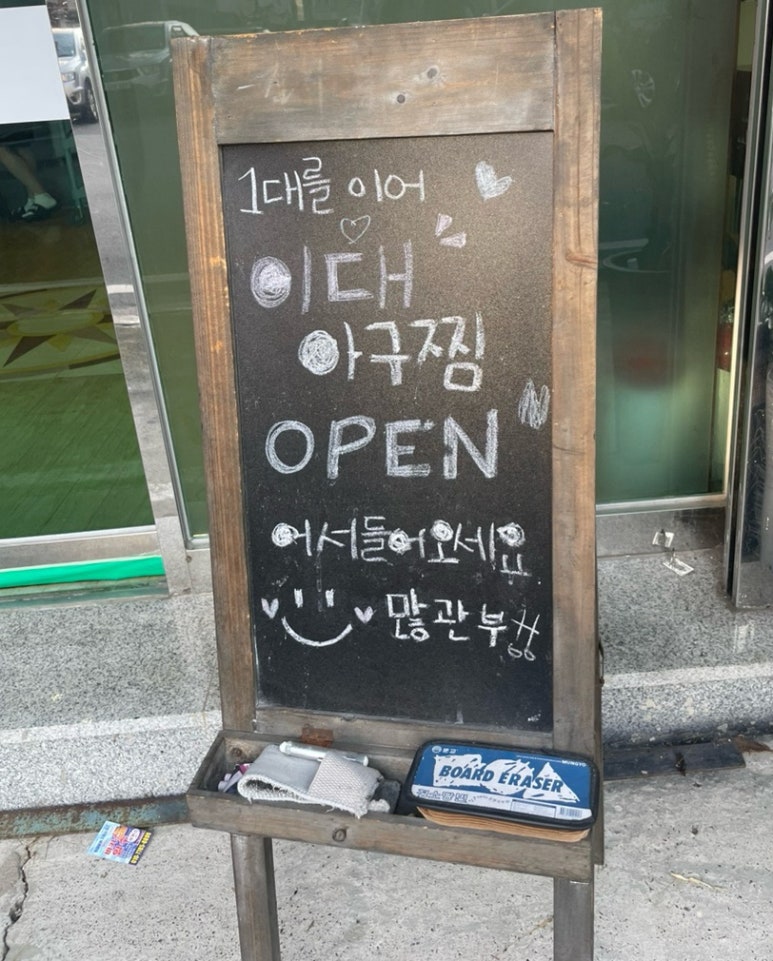 1대를 이어
이대
아구찜
OPEN
어서들어오세요
많관부!!
MUNGYO
BOARD ERASER